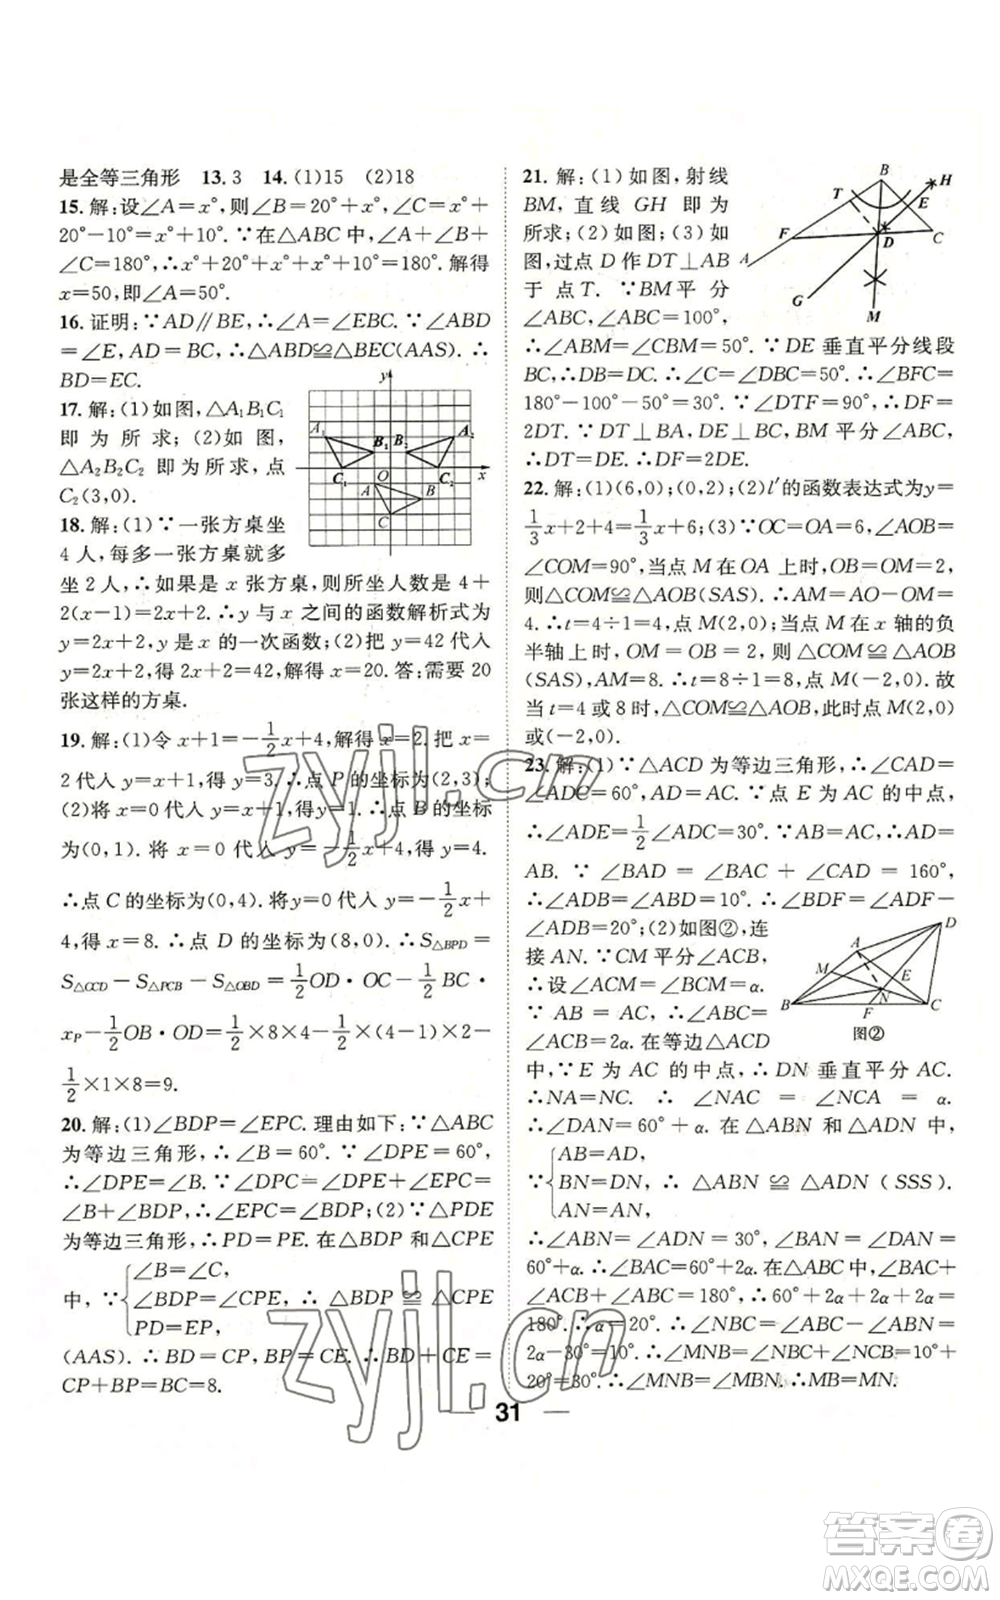 是全等三角形　13. 3　14. (1)15　(2)18
15. 解:设∠A=x°,则∠B=20°+x°,∠C=x°+
20°−10°=x°+10°. ∵在△ABC中,∠A+∠B+
∠C=180°,∴x°+20°+x°+x°+10°=180°. 解得
x=50,即∠A=50°.
16. 证明:∵AD∥BE,∴∠A=∠EBC. ∵∠ABD
=∠E,AD=BC,∴△ABD≌△BEC(AAS). ∴
BD=EC.
17. 解:(1)如图,△A₁B₁C₁
即为所求;(2)如图,
△A₂B₂C₂ 即为所求,点
C₂(3,0).
y
A₁
B₁
B₂
A₂
C₁
O
C₂
x
A
B
C
18. 解:(1)∵一张方桌坐
4人,每多一张方桌就多
坐2人,∴如果是x张方桌,则所坐人数是4+
2(x−1)=2x+2. ∴y与x之间的函数解析式为
y=2x+2,y是x的一次函数;(2)把y=42代入
y=2x+2,得2x+2=42,解得x=20. 答:需要20
张这样的方桌.
19. 解:(1)令x+1=−1/2x+4,解得x=2. 把x=
2代入y=x+1,得y=3. ∴点P的坐标为(2,3);
(2)将x=0代入y=x+1,得y=1. ∴点B的坐标
为(0,1). 将x=0代入y=−1/2x+4,得y=4.
∴点C的坐标为(0,4). 将y=0代入y=−1/2x+
4,得x=8. ∴点D的坐标为(8,0). ∴S△BPD=
S△OCD−S△PCB−S△OBD=1/2OD·OC−1/2BC·
xP−1/2OB·OD=1/2×8×4−1/2×(4−1)×2−
1/2×1×8=9.
20. 解:(1)∠BDP=∠EPC. 理由如下:∵△ABC
为等边三角形,∴∠B=60°. ∵∠DPE=60°,
∴∠DPE=∠B. ∵∠DPC=∠DPE+∠EPC=
∠B+∠BDP,∴∠EPC=∠BDP;(2)∵△PDE
为等边三角形,∴PD=PE. 在△BDP和△CPE
∠B=∠C,
中,∵{∠BDP=∠CPE,∴△BDP≌△CPE
PD=EP,
(AAS). ∴BD=CP,BP=CE. ∴BD+CE=
CP+BP=BC=8.
21. 解:(1)如图,射线
BM,直线GH即为
所求;(2)如图;(3)如
图,过点D作DT⊥AB
于点T. ∵BM平分
∠ABC,∠ABC=100°,
B
H
T
E
F
D
C
A
G
M
∴∠ABM=∠CBM=50°. ∵DE垂直平分线段
BC,∴DB=DC. ∴∠DBC=∠DCB=50°. ∴∠BFC=
180°−100°−50°=30°. ∵∠DTF=90°,∴DF=
2DT. ∵DT⊥BA,DE⊥BC,BM平分∠ABC,
∴DT=DE. ∴DF=2DE.
22. 解:(1)(6,0);(0,2);(2)l′的函数表达式为y=
1/3x+2+4=1/3x+6;(3)∵OC=OA=6,∠AOB
=∠COM=90°,当点M在OA上时,OB=OM=2,
则△COM≌△AOB(SAS). ∴AM=AO−OM=
4. ∴t=4÷1=4,点M(2,0);当点M在x轴的负
半轴上时,OM=OB=2,则△COM≌△AOB
(SAS),AM=8. ∴t=8÷1=8,点M(−2,0). 故
当t=4或8时,△COM≌△AOB,此时点M(2,0)
或(−2,0).
23. 解:(1)∵△ACD为等边三角形,∴∠CAD=
∠ADC=60°,AD=AC. ∵点E为AC的中点,
∴∠ADE=1/2∠ADC=30°. ∵AB=AC,∴AD=
AB. ∵∠BAD=∠BAC+∠CAD=160°,
∴∠ADB=∠ABD=10°. ∴∠BDF=∠ADF−
∠ADB=20°;(2)如图②,连
接AN. ∵CM平分∠ACB,
∴设∠ACM=∠BCM=α.
∵AB=AC,∴∠ABC=
∠ACB=2α. 在等边△ACD
D
A
M
E
N
B
F
C
图②
中,∵E为AC的中点,∴DN垂直平分AC.
∴NA=NC. ∴∠NAC=∠NCA=α.
∴∠DAN=60°+α. 在△ABN和△ADN中,
AB=AD,
∵{BN=DN,∴△ABN≌△ADN(SSS).
AN=AN,
∴∠ABN=∠ADN=30°,∠BAN=∠DAN=
60°+α. ∴∠BAC=60°+2α. 在△ABC中,∠BAC+
∠ACB+∠ABC=180°,∴60°+2α+2α+2α=
180°. ∴α=20°. ∴∠NBC=∠ABC−∠ABN=
2α−30°=10°. ∴∠MNB=∠NBC+∠NCB=10°+
20°=30°. ∴∠MNB=∠MBN. ∴MB=MN.
31
zyjl.cn
zyjl.cn
答案卷
MXQE.COM